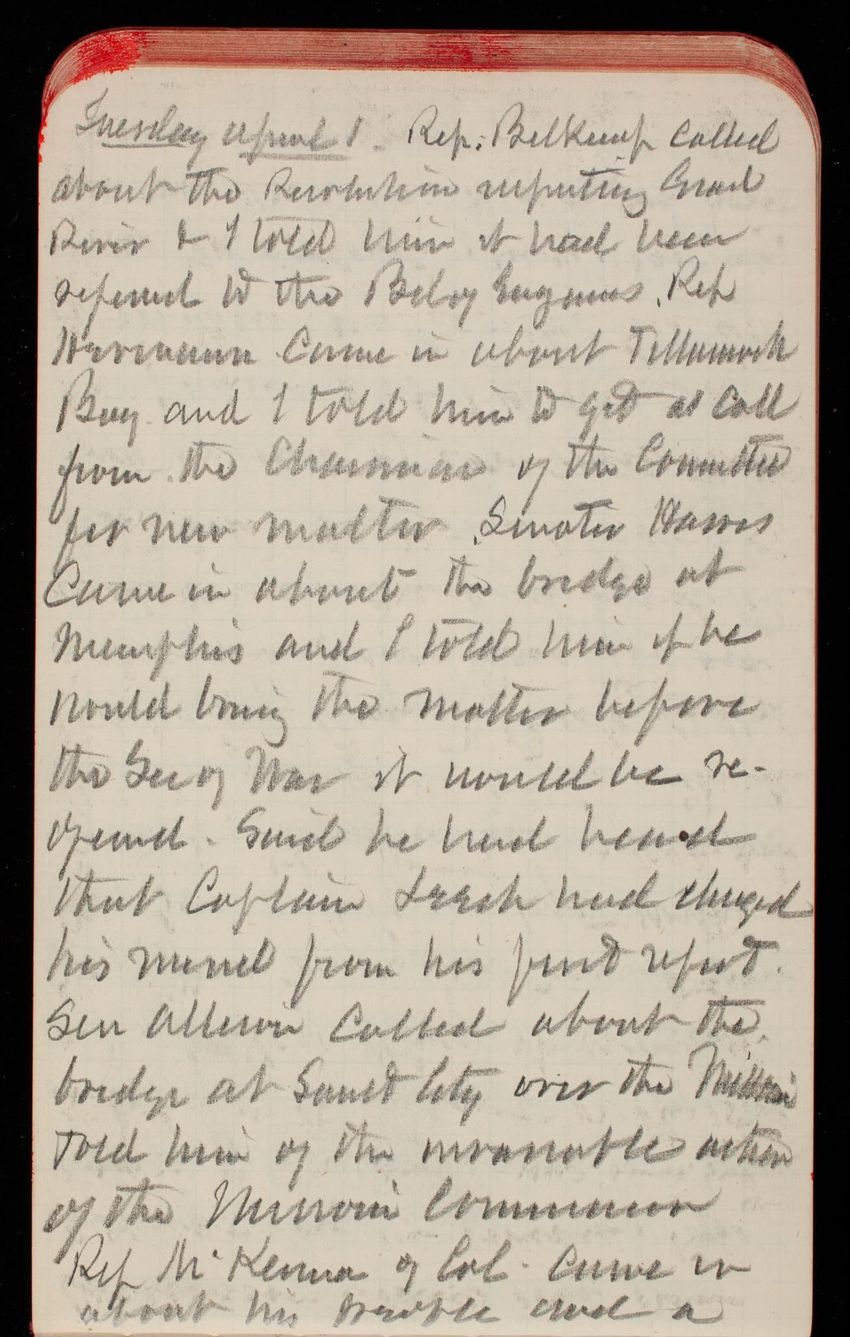 Tuesday April 1. Rep. Belknap called
about the Resolution respecting Grand
River & I told him it had been
referred to the Bd of Engineers. Rep
Hermann came in about Tillamook
Bay and I told him to get a call
from the Chairman of the Committee
for new matter. Senator Harris
Came in about the bridge at
Memphis and I told him if he
would bring the matter before
the Sec of War it would be re-
opened. Said he had heard
that Captain Leach had changed
his mind from his first report.
Sen Allison Called about the
bridge at City over the Missouri
Told him of the action
of the Missouri Commission
Rep McKenna of Cal. Came in
about his trouble and a